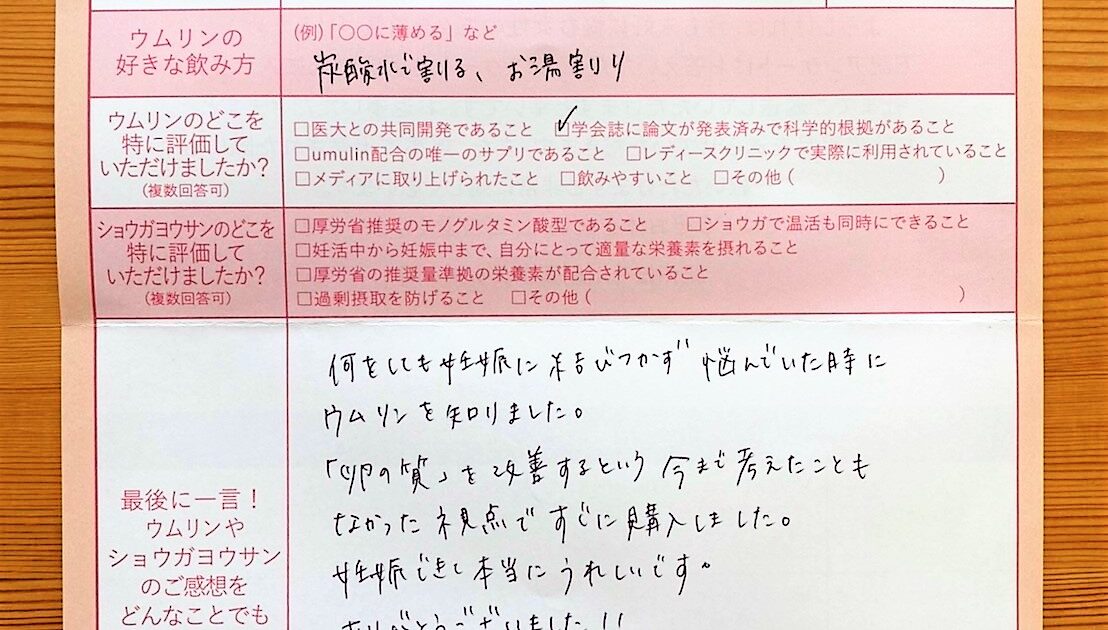 ウムリンの
好きな飲み方
(例)「〇〇に薄める」など
炭酸水で割る、お湯割り
ウムリンのどこを
特に評価して
いただけましたか?
(複数回答可)
□医大との共同開発であること ☑学会誌に論文が発表済みで科学的根拠があること
□umulin配合の唯一のサプリであること □レディースクリニックで実際に利用されていること
□メディアに取り上げられたこと □飲みやすいこと □その他( )
ショウガヨウサンのどこを
特に評価して
いただけましたか?
(複数回答可)
□厚労省推奨のモノグルタミン酸型であること □ショウガで温活も同時にできること
□妊活中から妊娠中まで、自分にとって適量な栄養素を摂れること
□厚労省の推奨量準拠の栄養素が配合されていること
□過剰摂取を防げること □その他( )
最後に一言!
ウムリンや
ショウガヨウサン
のご感想を
どんなことでも
何をしても妊娠に結びつかず悩んでいた時に
ウムリンを知りました。
「卵の質」を改善するという今まで考えたことも
なかった視点ですぐに購入しました。
妊娠できて本当にうれしいです。
ありがとうございました!!